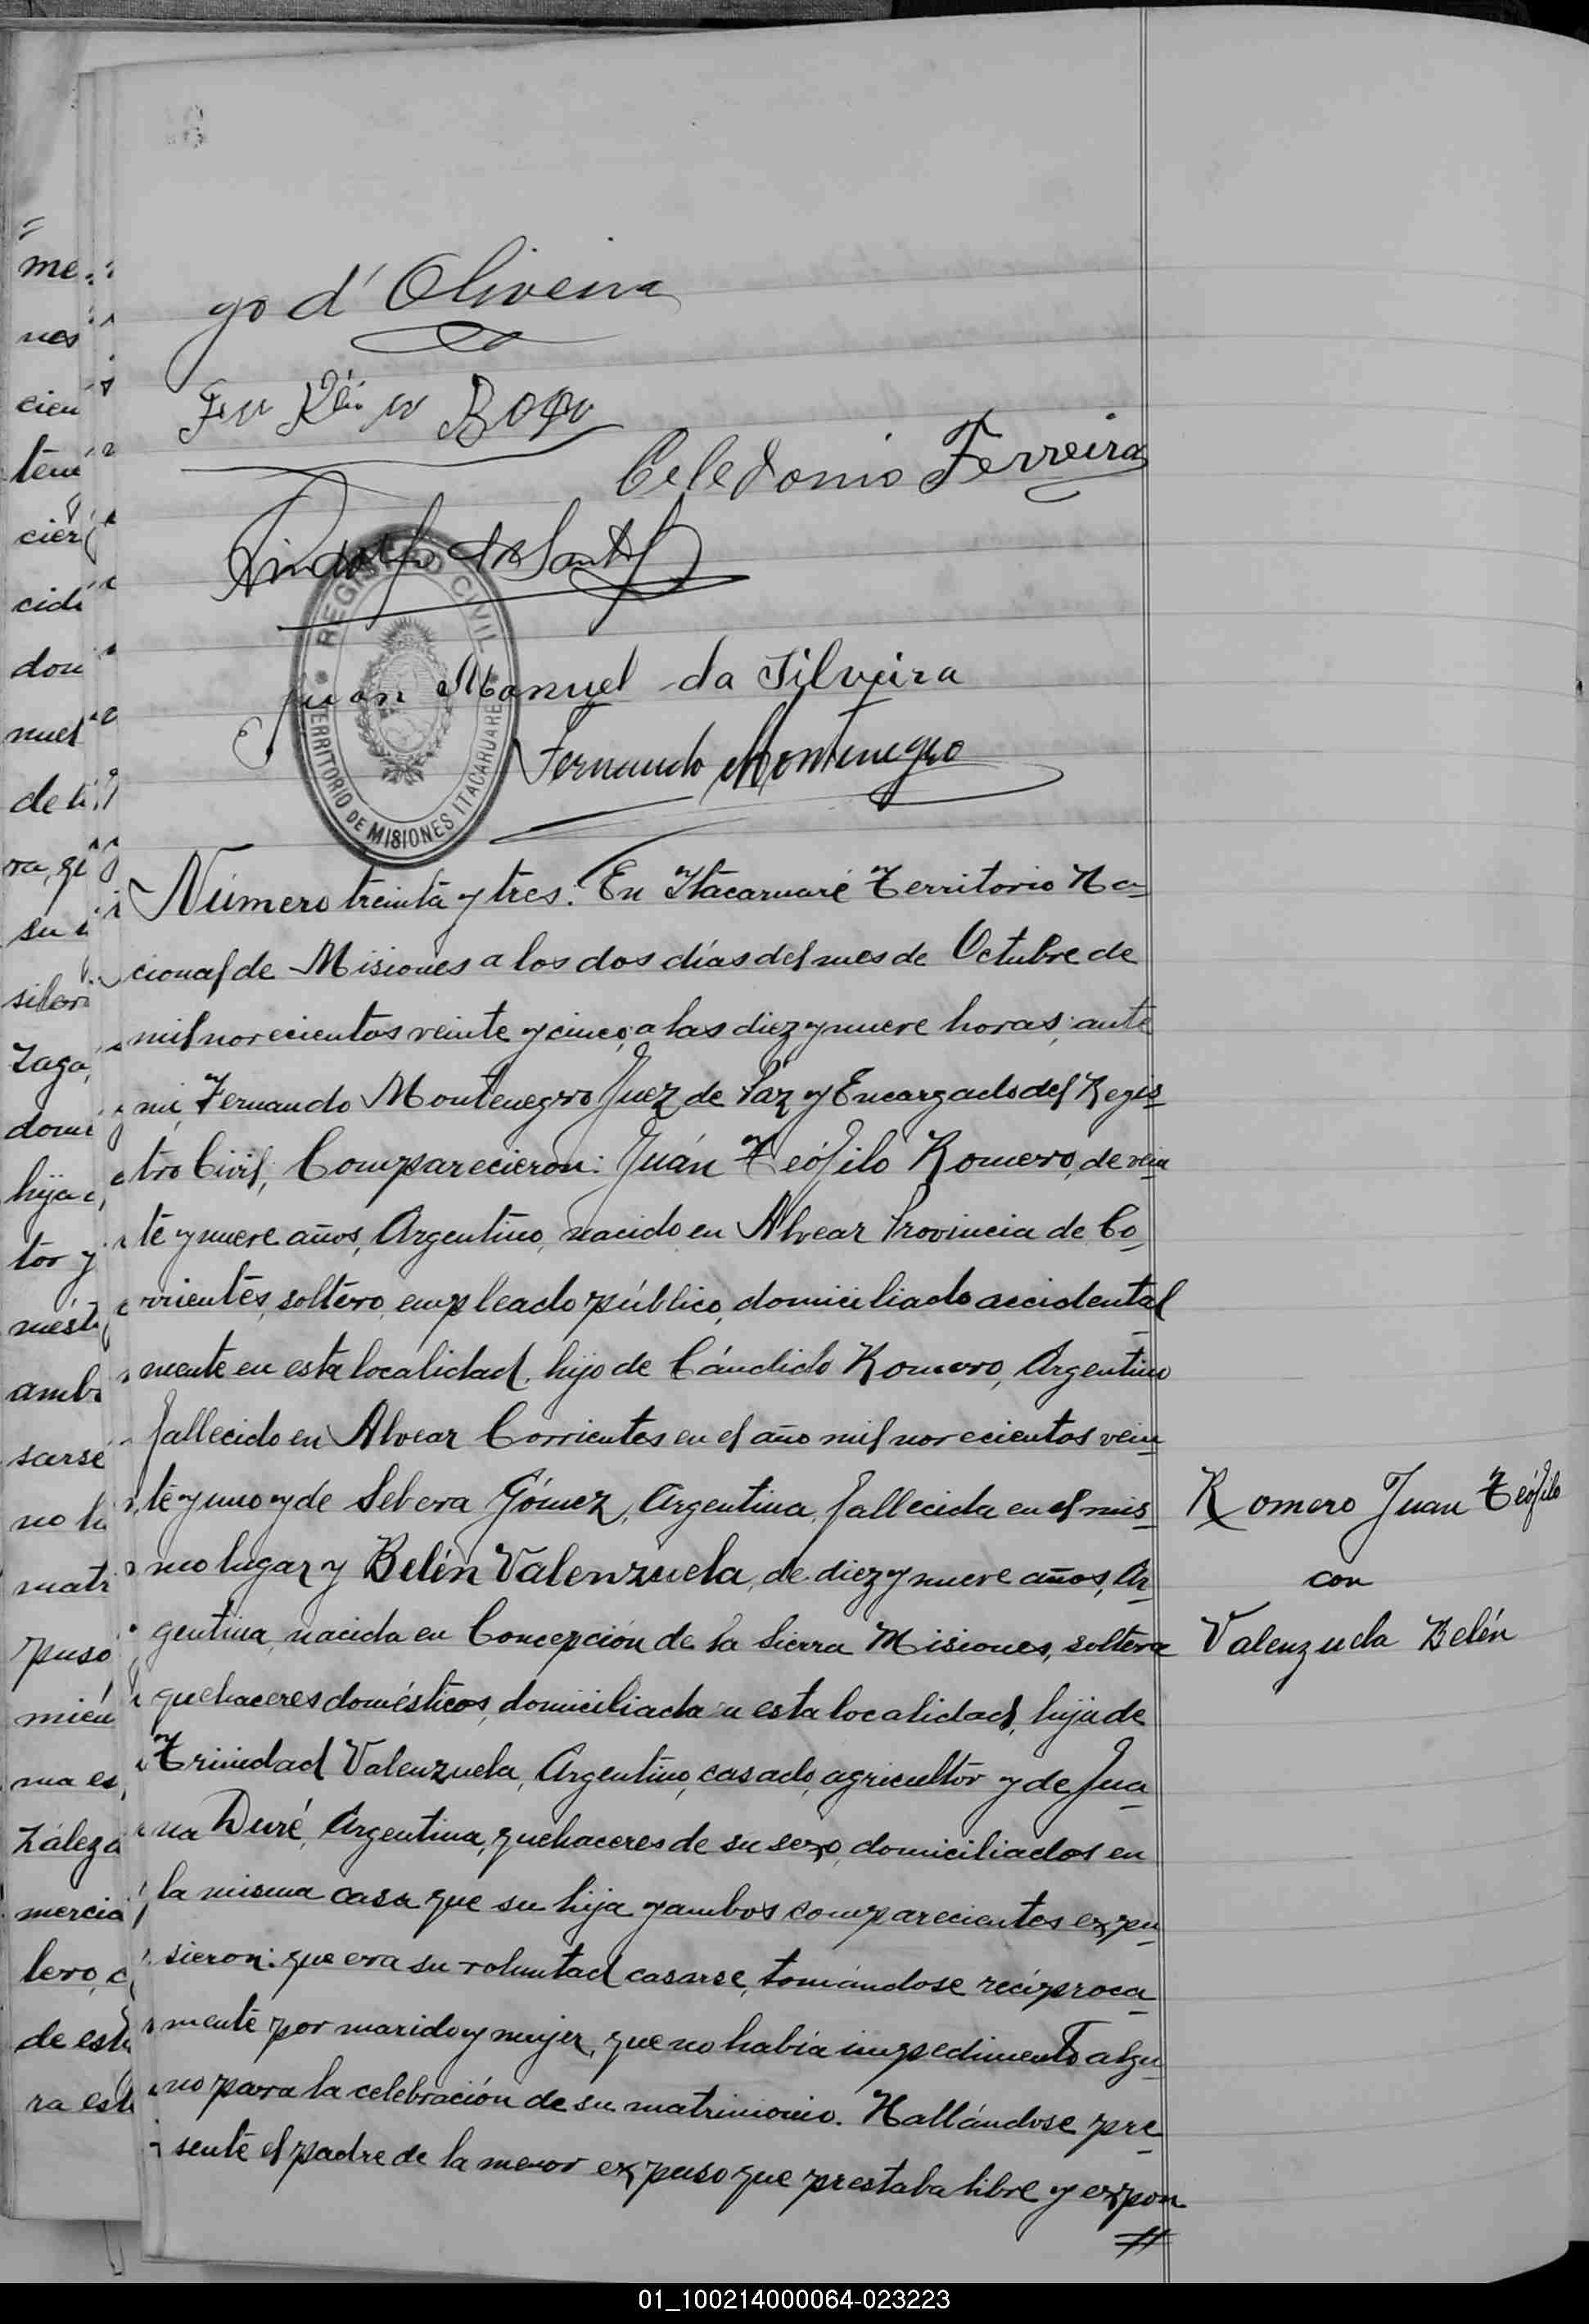 go d' Oliveira
Celedonio Ferreira
REGISTRO CIVIL
TERRITORIO DE MISIONES ITACARUARE
Juan Manuel da Silveira
Fernando Montenegro
Número treinta y tres. En Itacaruaré Territorio Na-
cional de Misiones a los dos días del mes de Octubre de
mil novecientos veinte y cinco, a las diez y nueve horas, ante
mi, Fernando Montenegro Juez de Paz y Encargado del Regis-
tro Civil, Comparecieron: Juán Teófilo Romero, de vein
te y nueve años, Argentino, nacido en Alvear Provincia de Co-
rrientes, soltero, empleado público, domiciliado accidental
mente en esta localidad, hijo de Cándido Romero, Argentino
fallecido en Alvear Corrientes en el año mil novecientos vein
te y uno y de Severa Gómez, Argentina, fallecida en el mis-
mo lugar y Belén Valenzuela, de diez y nueve años, Ar-
gentina, nacida en Concepción de la Sierra Misiones, soltera
quehaceres domésticos, domiciliada en esta localidad, hija de
Trinidad Valenzuela, Argentino, casado, agricultor y de Jua-
na Duré, Argentina, quehaceres de su sexo, domiciliados en
la misma casa que su hija y ambos comparecientes expu-
sieron: que era su voluntad casarse, tomándose recíproca-
mente por marido y mujer, que no había impedimento algu-
no para la celebración de su matrimonio. Hallándose pre-
sente el padre de la menor expuso que prestaba libre y expon
Romero Juan Teófilo
con
Valenzuela Belén
01_100214000064-023223